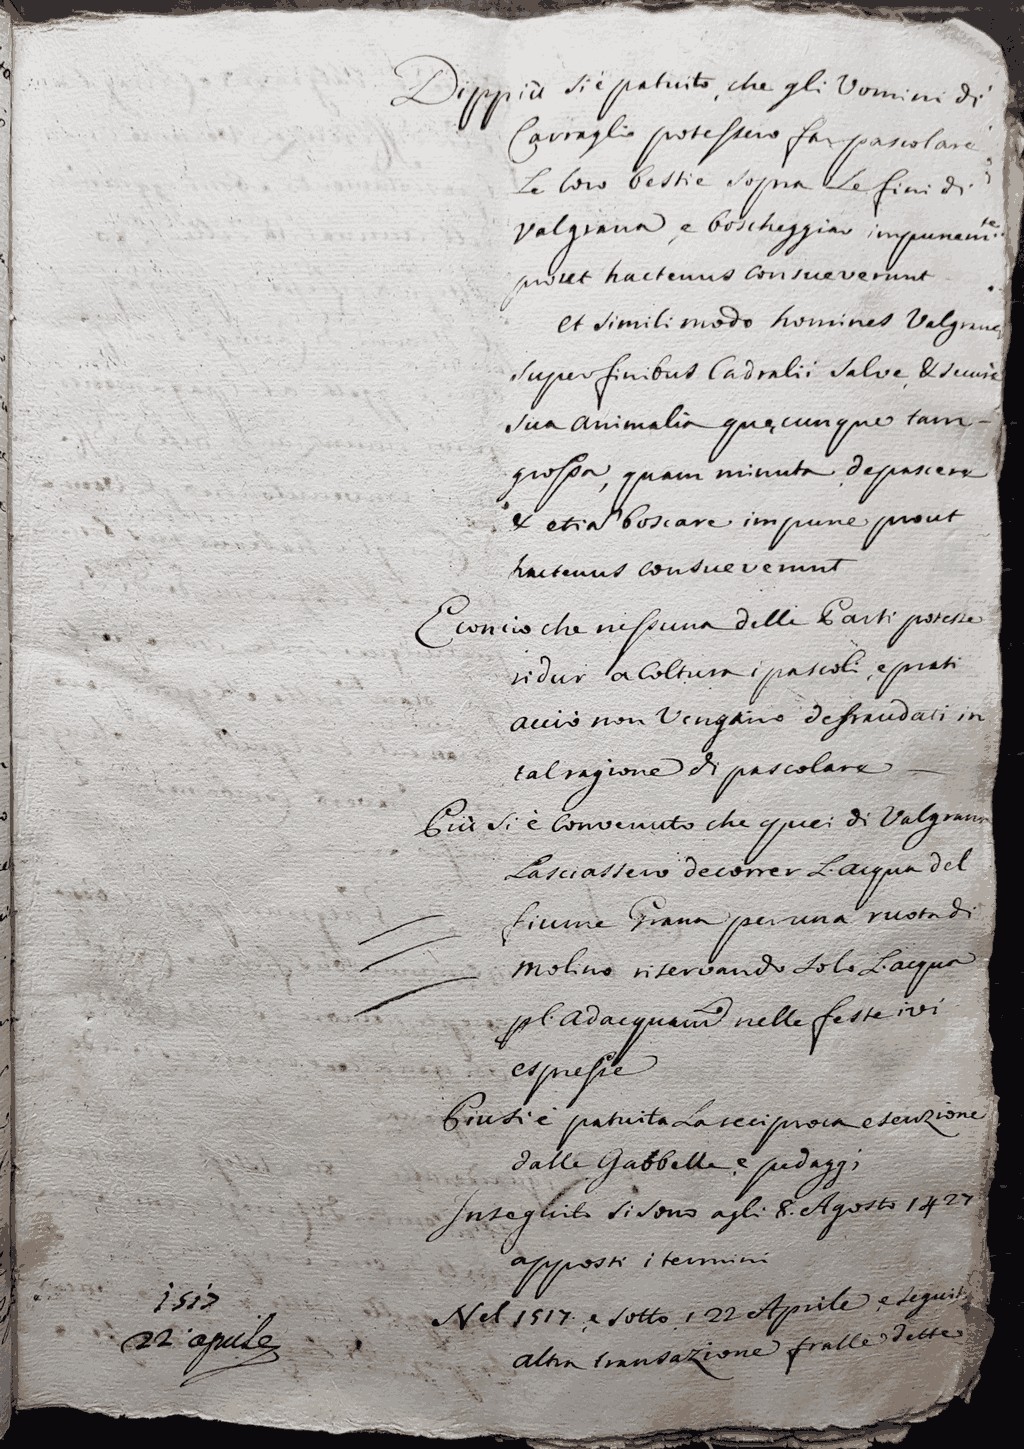 Dippiù si è patuito, che gli Uomini di
Cavraglio potessero far pascolare
Le loro bestie sopra Le fini di
Valgrana e boscheggiar impunemte
prout hactenus consueverunt
et simili modo homines Valgranę
super finibus Cadralii salve, & secure
sua animalia quęcunque tam
grossa, quam minuta depascere
& etiã boscare impune prout
hactenus consueverunt
E concio che nessuna delle Parti potesse
ridur a Coltura i pascoli, e prati
acciò non Vengano defraudati in
tal ragione di pascolare
Più si è Convenuto che quei di Valgrana
Lasciassero decorrer L'acqua del
fiume Grana per una ruota di
molino riservando solo L'acqua
pl' adacquamto nelle feste ivi
espresse
Più si è patuita La reciproca esenzione
dalle Gabbelle e pedaggi
Inseguito si sono agli 8. Agosto 1427
apposti i termini
1517
22 aprile
Nel 1517 e sotto i 22 Aprile e seguit
altra transazione fralle dette